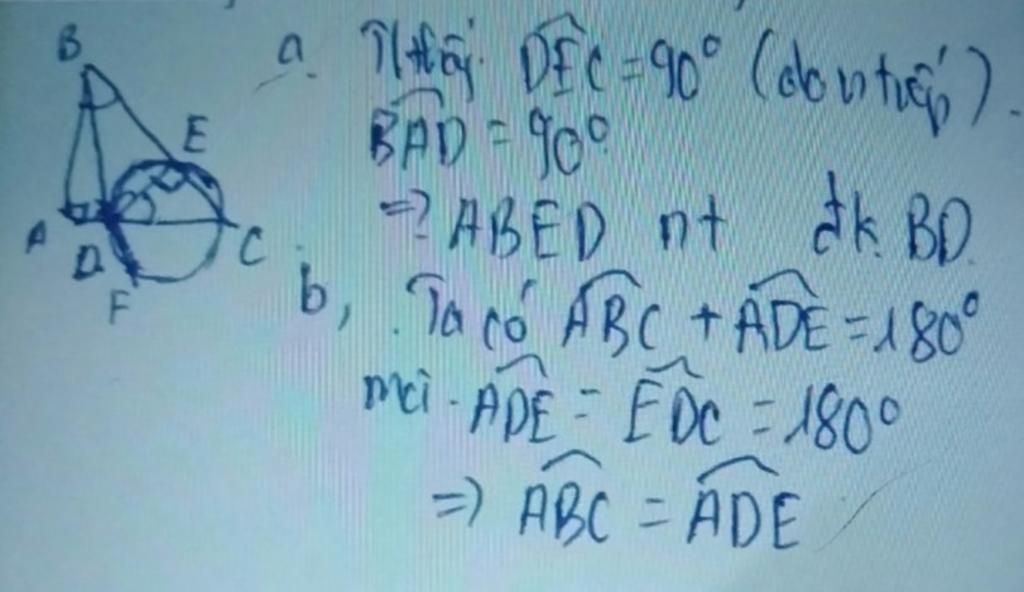 B
E
A
D
C
F
a. Ta thấy: DEC = 90° (do ntiếp).
BAD = 90°
=> ABED nt đk BD.
b, Ta có ABC + ADE = 180°
mà ADE = EDC = 180°
=> ABC = ADE